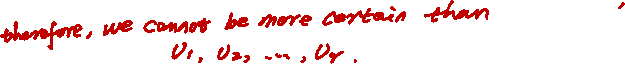 therefore, we cannot be more certain than
U1, U2, ..., Ur.